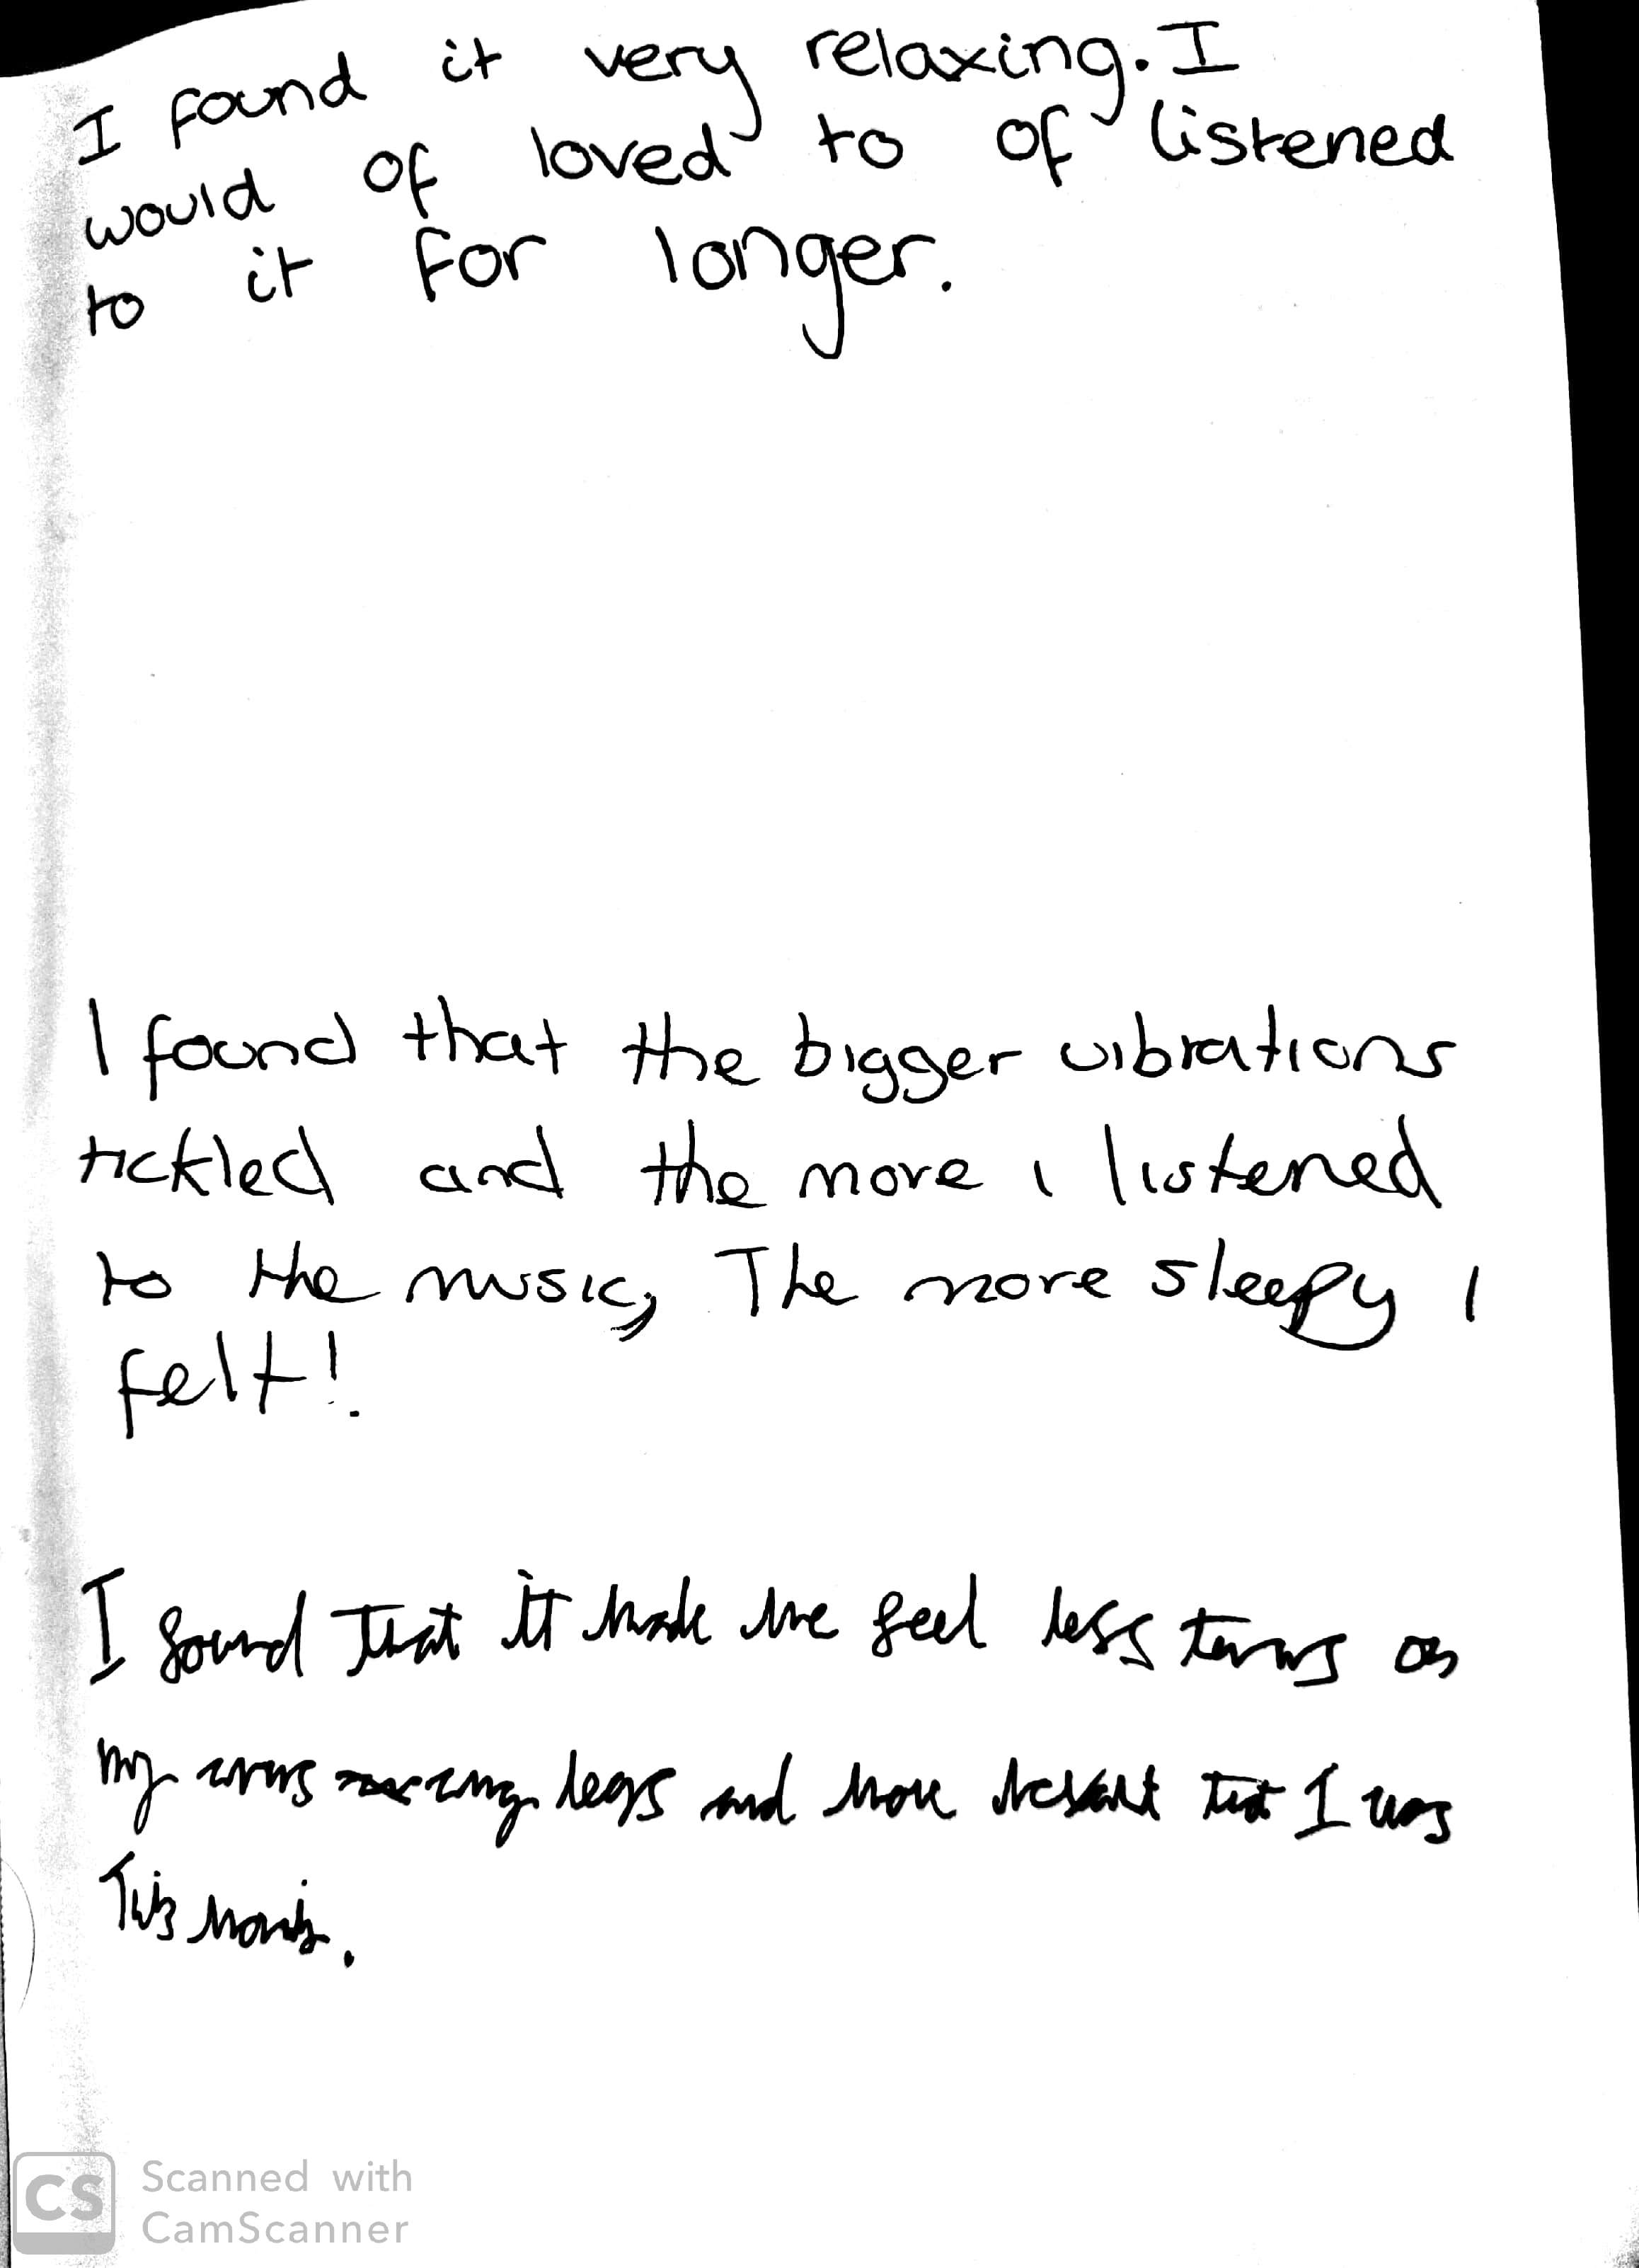 I found it very relaxing. I
would of loved to of listened
to it for longer.
I found that the bigger vibrations
tickled and the more i listened
to the music, The more sleepy I
felt!
I found that it made me feel less tens on
my arms my legs and more that I was
This morning.
CS
Scanned with
CamScanner